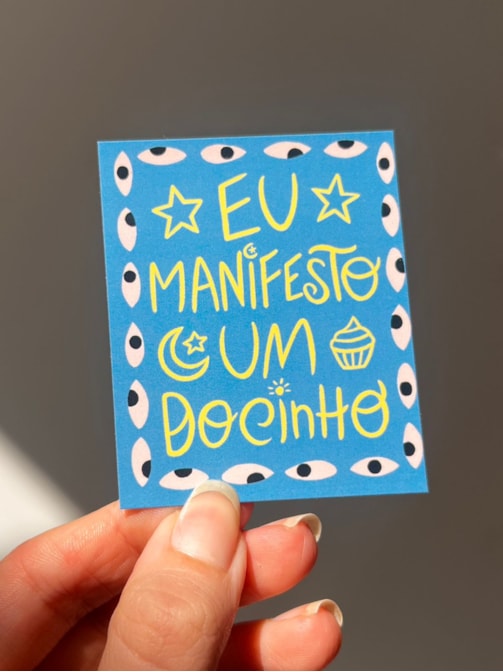 EU
MANIFESTO
UM
DOCINHO